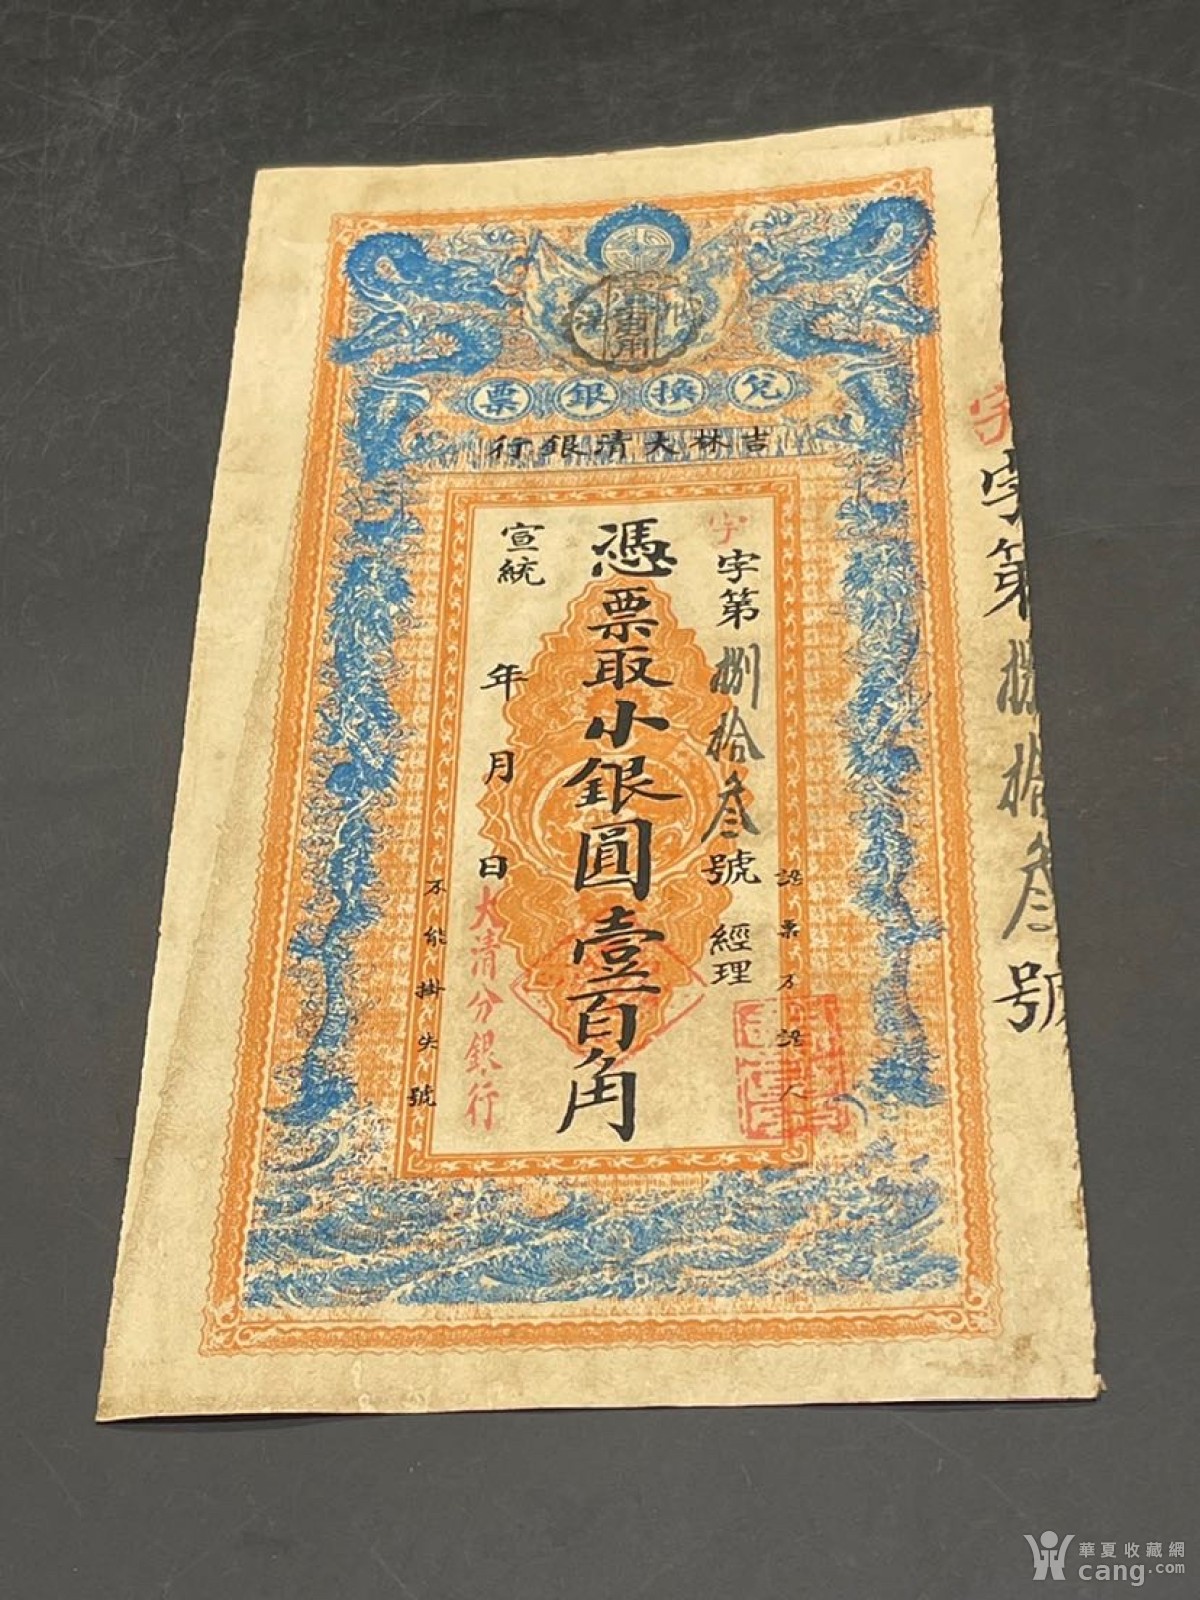 兌換銀票
吉林大清銀行
字
字第捌拾叁號 經理
認票不認人
憑票取小銀圓壹百角
宣統 年 月 日
大清分銀行
不能掛失號
字
字第捌拾叁號
華夏收藏網
cang.com